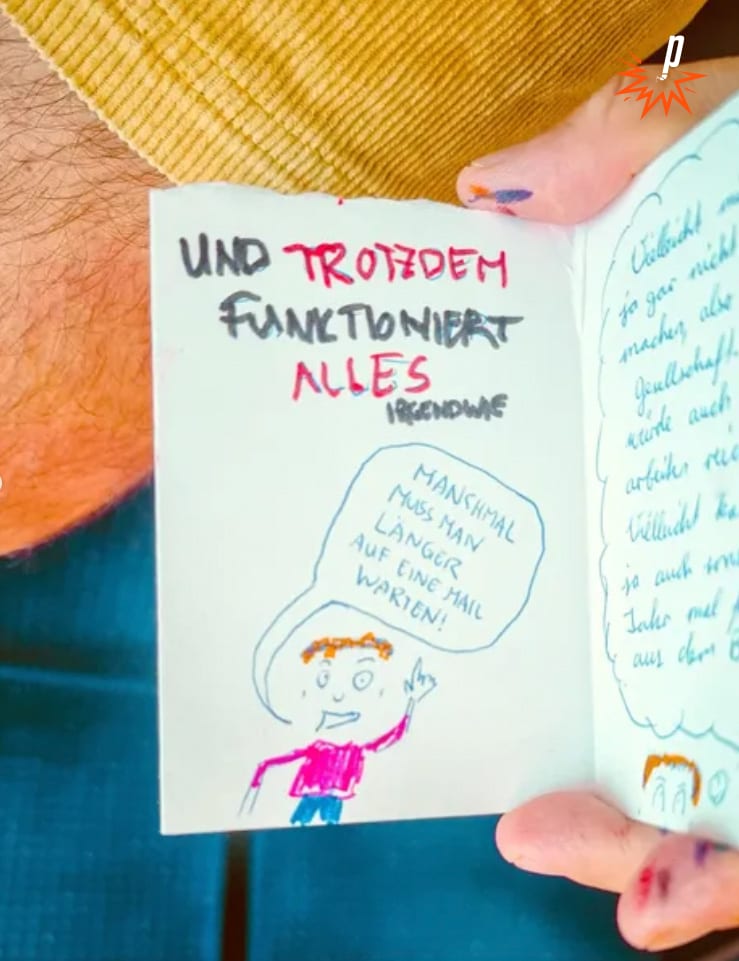 p
UND TROTZDEM
FUNKTIONIERT
ALLES
IRGENDWIE
MANCHMAL
MUSS MAN
LÄNGER
AUF EINE MAIL
WARTEN!
Vielleicht
ja gar nicht
machen, also
Gesellschaft.
würde auch
arbeiten
Vielleicht
ja auch
Jahr mal
aus dem